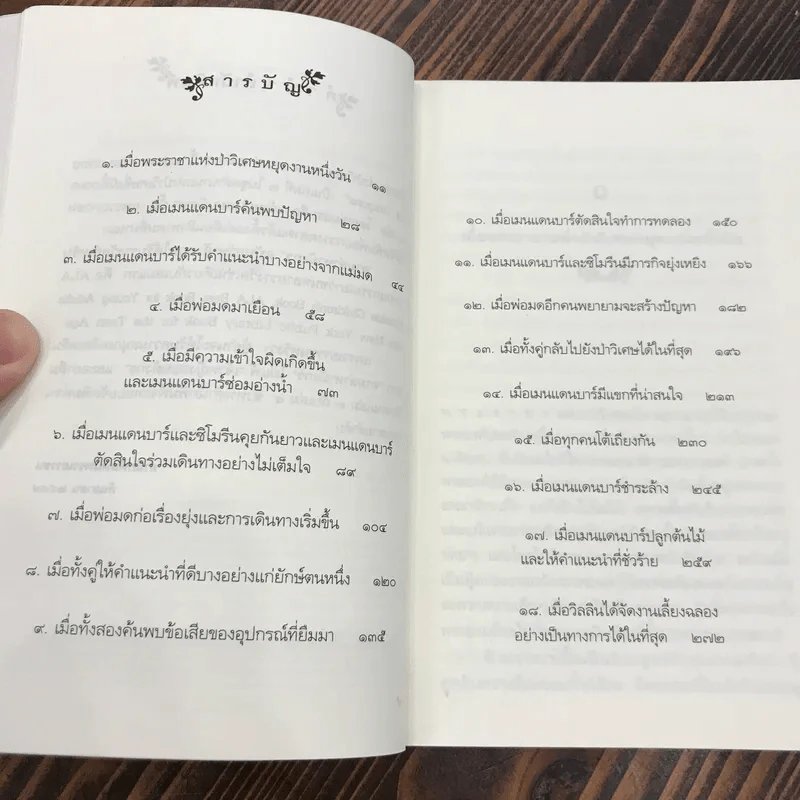 สารบัญ
๑. เมื่อพระราชาแห่งป่าวิเศษหยุดงานหนึ่งวัน ๑๑
๒. เมื่อเมนแดนบาร์ค้นพบปัญหา ๒๘
๓. เมื่อเมนแดนบาร์ได้รับคำแนะนำบางอย่างจากแม่มด ๔๔
๔. เมื่อพ่อมดมาเยือน ๕๘
๕. เมื่อมีความเข้าใจผิดเกิดขึ้น
และเมนแดนบาร์ซ่อมอ่างน้ำ ๗๓
๖. เมื่อเมนแดนบาร์และซิโมรีนคุยกันยาวและเมนแดนบาร์
ตัดสินใจร่วมเดินทางอย่างไม่เต็มใจ ๘๙
๗. เมื่อพ่อมดก่อเรื่องยุ่งและการเดินทางเริ่มขึ้น ๑๐๔
๘. เมื่อทั้งคู่ให้คำแนะนำที่ดีบางอย่างแก่ยักษ์ตนหนึ่ง ๑๒๐
๙. เมื่อทั้งสองค้นพบข้อเสียของอุปกรณ์ที่ยืมมา ๑๓๕
๑๐. เมื่อเมนแดนบาร์ตัดสินใจทำการทดลอง ๑๕๐
๑๑. เมื่อเมนแดนบาร์และซิโมรีนมีภารกิจยุ่งเหยิง ๑๖๖
๑๒. เมื่อพ่อมดอีกคนพยายามจะสร้างปัญหา ๑๘๒
๑๓. เมื่อทั้งคู่กลับไปยังป่าวิเศษได้ในที่สุด ๑๙๖
๑๔. เมื่อเมนแดนบาร์มีแขกที่น่าสนใจ ๒๑๓
๑๕. เมื่อทุกคนโต้เถียงกัน ๒๓๐
๑๖. เมื่อเมนแดนบาร์ชำระล้าง ๒๔๕
๑๗. เมื่อเมนแดนบาร์ปลูกต้นไม้
และให้คำแนะนำที่ชั่วร้าย ๒๕๙
๑๘. เมื่อวิลลินได้จัดงานเลี้ยงฉลอง
อย่างเป็นทางการได้ในที่สุด ๒๗๒